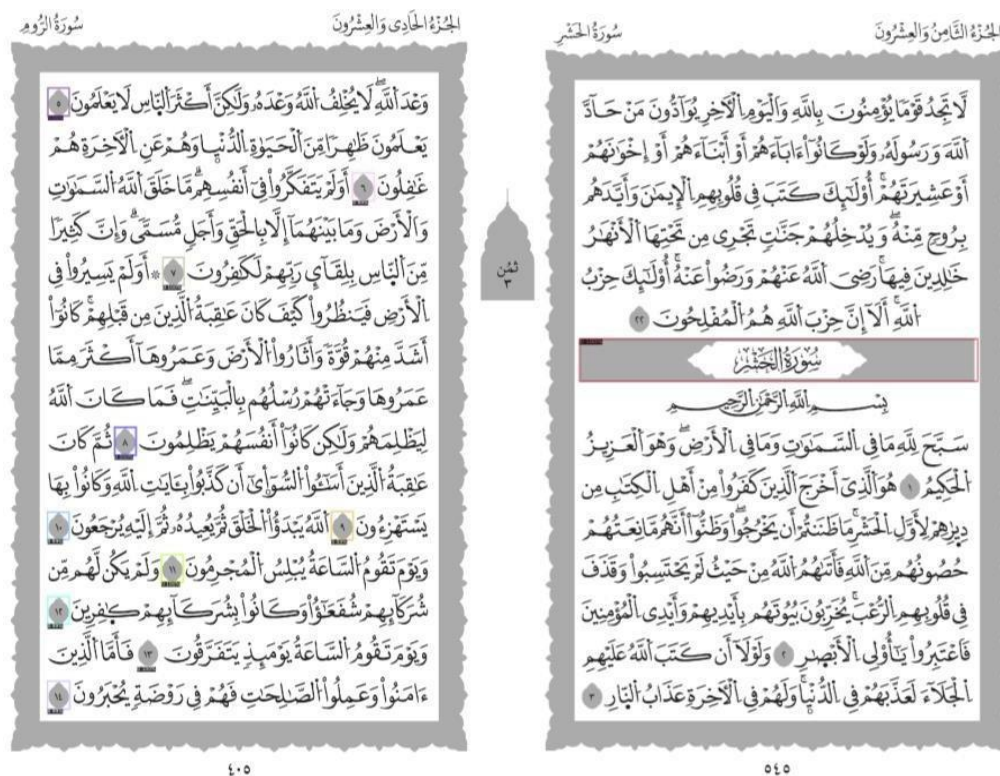 الجُزْءُ الثَّامِنُ وَالْعِشْرُونَ
سُورَةُ الحَشْرِ
لَّا تَجِدُ قَوْمًا يُؤْمِنُونَ بِاللَّهِ وَالْيَوْمِ الْأَخِرِ يُوَآدُّونَ مَنْ حَآدَّ
اللَّهَ وَرَسُولَهُۥ وَلَوْ كَانُوٓاْ ءَابَآءَهُمْ أَوْ أَبْنَآءَهُمْ أَوْ إِخْوَٰنَهُمْ
أَوْ عَشِيرَتَهُمْۚ أُوْلَٰٓئِكَ كَتَبَ فِى قُلُوبِهِمِ الْإِيمَٰنَ وَأَيَّدَهُم
بِرُوحٍ مِّنْهُۖ وَيُدْخِلُهُمْ جَنَّٰتٍ تَجْرِى مِن تَحْتِهَا الْأَنْهَٰرُ
خَٰلِدِينَ فِيهَاۚ رَضِىَ اللَّهُ عَنْهُمْ وَرَضُواْ عَنْهُۚ أُوْلَٰٓئِكَ حِزْبُ
اللَّهِۚ أَلَآ إِنَّ حِزْبَ اللَّهِ هُمُ الْمُفْلِحُونَ ٢٢
سُورَةُ الحَشْرِ
بِسْمِ اللَّهِ الرَّحْمَٰنِ الرَّحِيمِ
سَبَّحَ لِلَّهِ مَا فِى السَّمَٰوَٰتِ وَمَا فِى الْأَرْضِۖ وَهْوَ الْعَزِيزُ
الْحَكِيمُ ١ هُوَ الَّذِىٓ أَخْرَجَ الَّذِينَ كَفَرُواْ مِنْ أَهْلِ الْكِتَٰبِ مِن
دِيٰرِهِمْ لِأَوَّلِ الْحَشْرِۚ مَا ظَنَنتُمْ أَن يَخْرُجُواْۖ وَظَنُّوٓاْ أَنَّهُم مَّانِعَتُهُمْ
حُصُونُهُم مِّنَ اللَّهِ فَأَتَىٰهُمُ اللَّهُ مِنْ حَيْثُ لَمْ يَحْتَسِبُواْۖ وَقَذَفَ
فِى قُلُوبِهِمِ الرُّعْبَۚ يُخَرِّبُونَ بُيُوتَهُم بِأَيْدِيهِمْ وَأَيْدِى الْمُؤْمِنِينَ
فَاعْتَبِرُواْ يَٰٓأُوْلِى الْأَبْصَٰرِ ٢ وَلَوْلَآ أَن كَتَبَ اللَّهُ عَلَيْهِمِ
الْجَلَآءَ لَعَذَّبَهُمْ فِى الدُّنْيَاۖ وَلَهُمْ فِى الْأَخِرَةِ عَذَابُ النَّارِ ٣
٥٤٥
ثُمُن
٣
الجُزْءُ الحَادِى وَالْعِشْرُونَ
سُورَةُ الرُّومِ
وَعْدَ اللَّهِۖ لَا يُخْلِفُ اللَّهُ وَعْدَهُۥ وَلَٰكِنَّ أَكْثَرَ النَّاسِ لَا يَعْلَمُونَ ٥
يَعْلَمُونَ ظَٰهِرًا مِّنَ الْحَيَوٰةِ الدُّنْيَا وَهُمْ عَنِ الْأَخِرَةِ هُمْ
غَٰفِلُونَ ٦ أَوَلَمْ يَتَفَكَّرُواْ فِىٓ أَنفُسِهِمۗ مَّا خَلَقَ اللَّهُ السَّمَٰوَٰتِ
وَالْأَرْضَ وَمَا بَيْنَهُمَآ إِلَّا بِالْحَقِّ وَأَجَلٍ مُّسَمًّىۗ وَإِنَّ كَثِيرًا
مِّنَ النَّاسِ بِلِقَآىِٕ رَبِّهِمْ لَكَٰفِرُونَ ٧ * أَوَلَمْ يَسِيرُواْ فِى
الْأَرْضِ فَيَنظُرُواْ كَيْفَ كَانَ عَٰقِبَةُ الَّذِينَ مِن قَبْلِهِمْۚ كَانُوٓاْ
أَشَدَّ مِنْهُمْ قُوَّةً وَأَثَارُواْ الْأَرْضَ وَعَمَرُوهَآ أَكْثَرَ مِمَّا
عَمَرُوهَا وَجَآءَتْهُمْ رُسْلُهُم بِالْبَيِّنَٰتِۖ فَمَا كَانَ اللَّهُ
لِيَظْلِمَهُمْ وَلَٰكِن كَانُوٓاْ أَنفُسَهُمْ يَظْلِمُونَ ٨ ثُمَّ كَانَ
عَٰقِبَةُ الَّذِينَ أَسَٰٓـُٔواْ السُّوٓأَىٰٓ أَن كَذَّبُواْ بِـَٔايَٰتِ اللَّهِ وَكَانُواْ بِهَا
يَسْتَهْزِءُونَ ٩ اللَّهُ يَبْدَؤُاْ الْخَلْقَ ثُمَّ يُعِيدُهُۥ ثُمَّ إِلَيْهِ يُرْجَعُونَ ١٠
وَيَوْمَ تَقُومُ السَّاعَةُ يُبْلِسُ الْمُجْرِمُونَ ١١ وَلَمْ يَكُن لَّهُم مِّن
شُرَكَآئِهِمْ شُفَعَٰٓؤُاْ وَكَانُواْ بِشُرَكَآئِهِمْ كَٰفِرِينَ ١٢
وَيَوْمَ تَقُومُ السَّاعَةُ يَوْمَئِذٍ يَتَفَرَّقُونَ ١٣ فَأَمَّا الَّذِينَ
ءَامَنُواْ وَعَمِلُواْ الصَّٰلِحَٰتِ فَهُمْ فِى رَوْضَةٍ يُحْبَرُونَ ١٤
٤٠٥